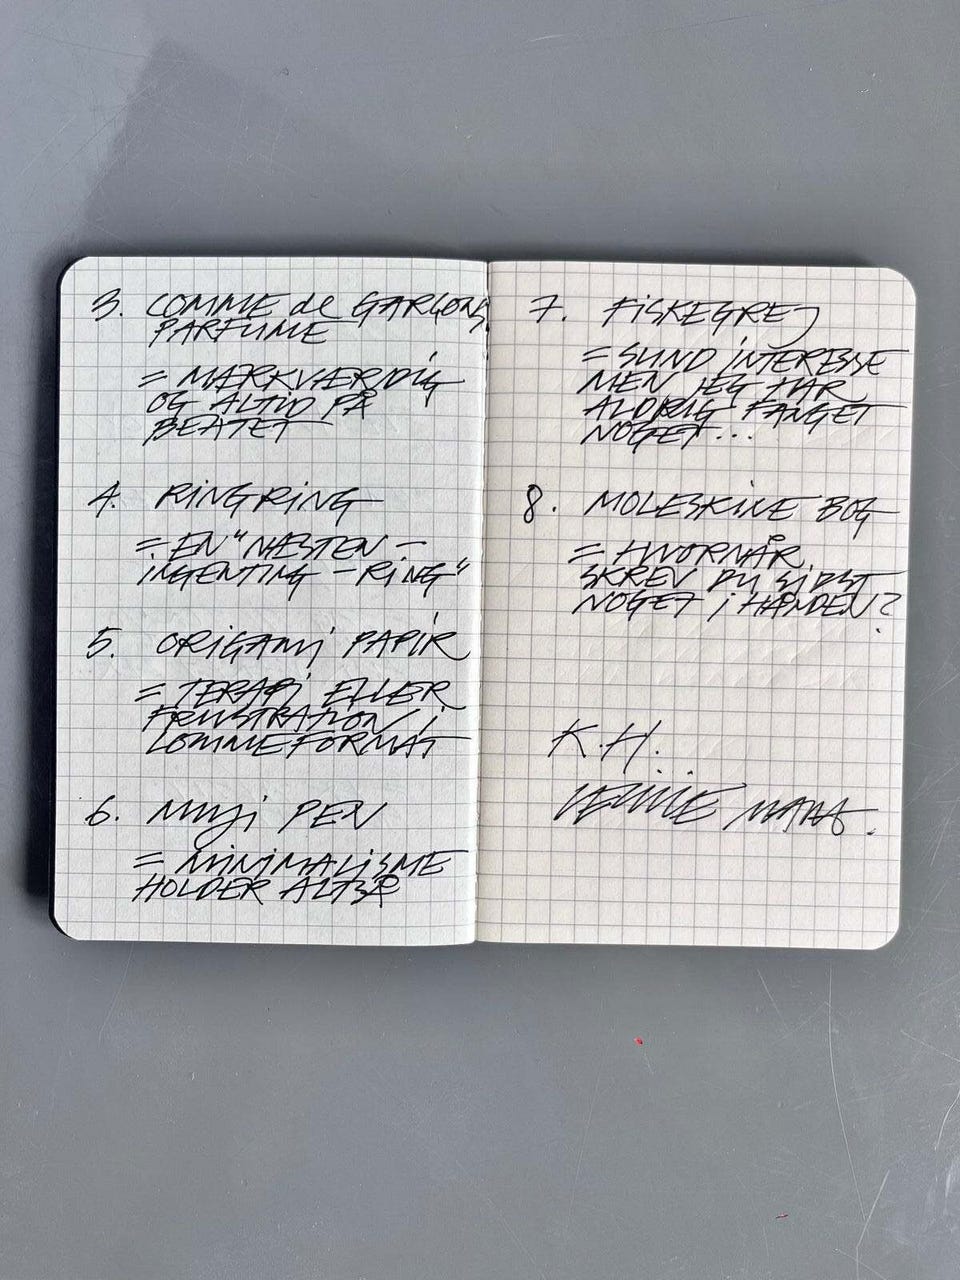 3. COMME de GARÇONS
PARFUME
= MÆRKVÆRDIG
OG ALTID PÅ
BEATET
4. RINGRING
= EN "NÆSTEN -
INGENTING - RING"
5. ORIGAMI PAPIR
= TERAPI ELLER
FRUSTRATION I
LOMMEFORMAT
6. MUJI PEN
= MINIMALISME
HOLDER ALTID
7. FISKEGREJ
= SUND INTERESSE
MEN JEG HAR
ALDRIG FANGET
NOGET...
8. MOLESKINE BOG
= HVORNÅR
SKREV DU SIDST
NOGET I HÅNDEN?
K.H.